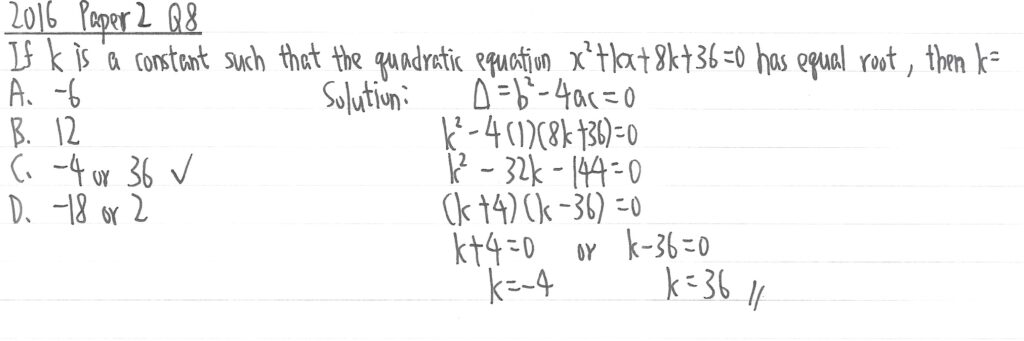 2016 Paper 2 Q8
If k is a constant such that the quadratic equation x²+kx+8k+36=0 has equal root, then k=
A. -6
Solution: Δ=b²-4ac=0
B. 12
k²-4(1)(8k+36)=0
C. -4 or 36 ✓
k²-32k-144=0
D. -18 or 2
(k+4)(k-36)=0
k+4=0 or k-36=0
k=-4 k=36 //